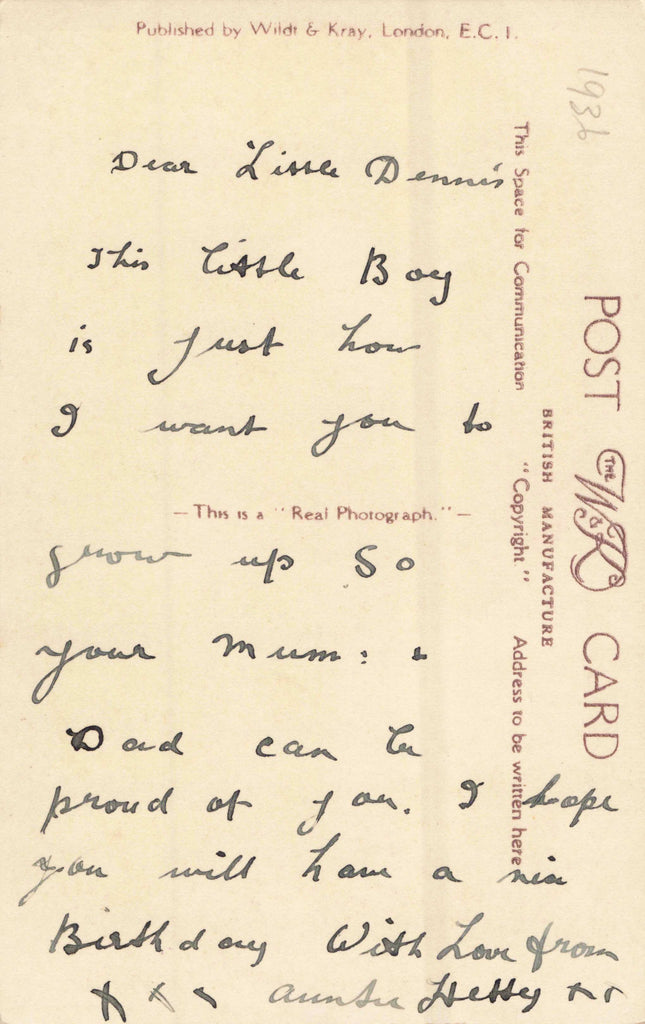 Published by Wildt & Kray, London, E.C.1.
1936
Dear Little Dennis
This little Boy
is just how
I want you to
— This is a "Real Photograph." —
grow up so
your Mum: &
Dad can be
proud of you. I hope
you will have a nice
Birthday With Love from
x x x Auntie Hetty x x
This Space for Communication "Copyright" Address to be written here
BRITISH MANUFACTURE
POST THE W & K CARD